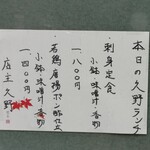 本日の久野ランチ
・刺身定食
小鉢・味噌汁・香物
一、八〇〇円
・若鶏唐揚ポン酢
小鉢・味噌汁・香物
一、四〇〇円
店主 久野